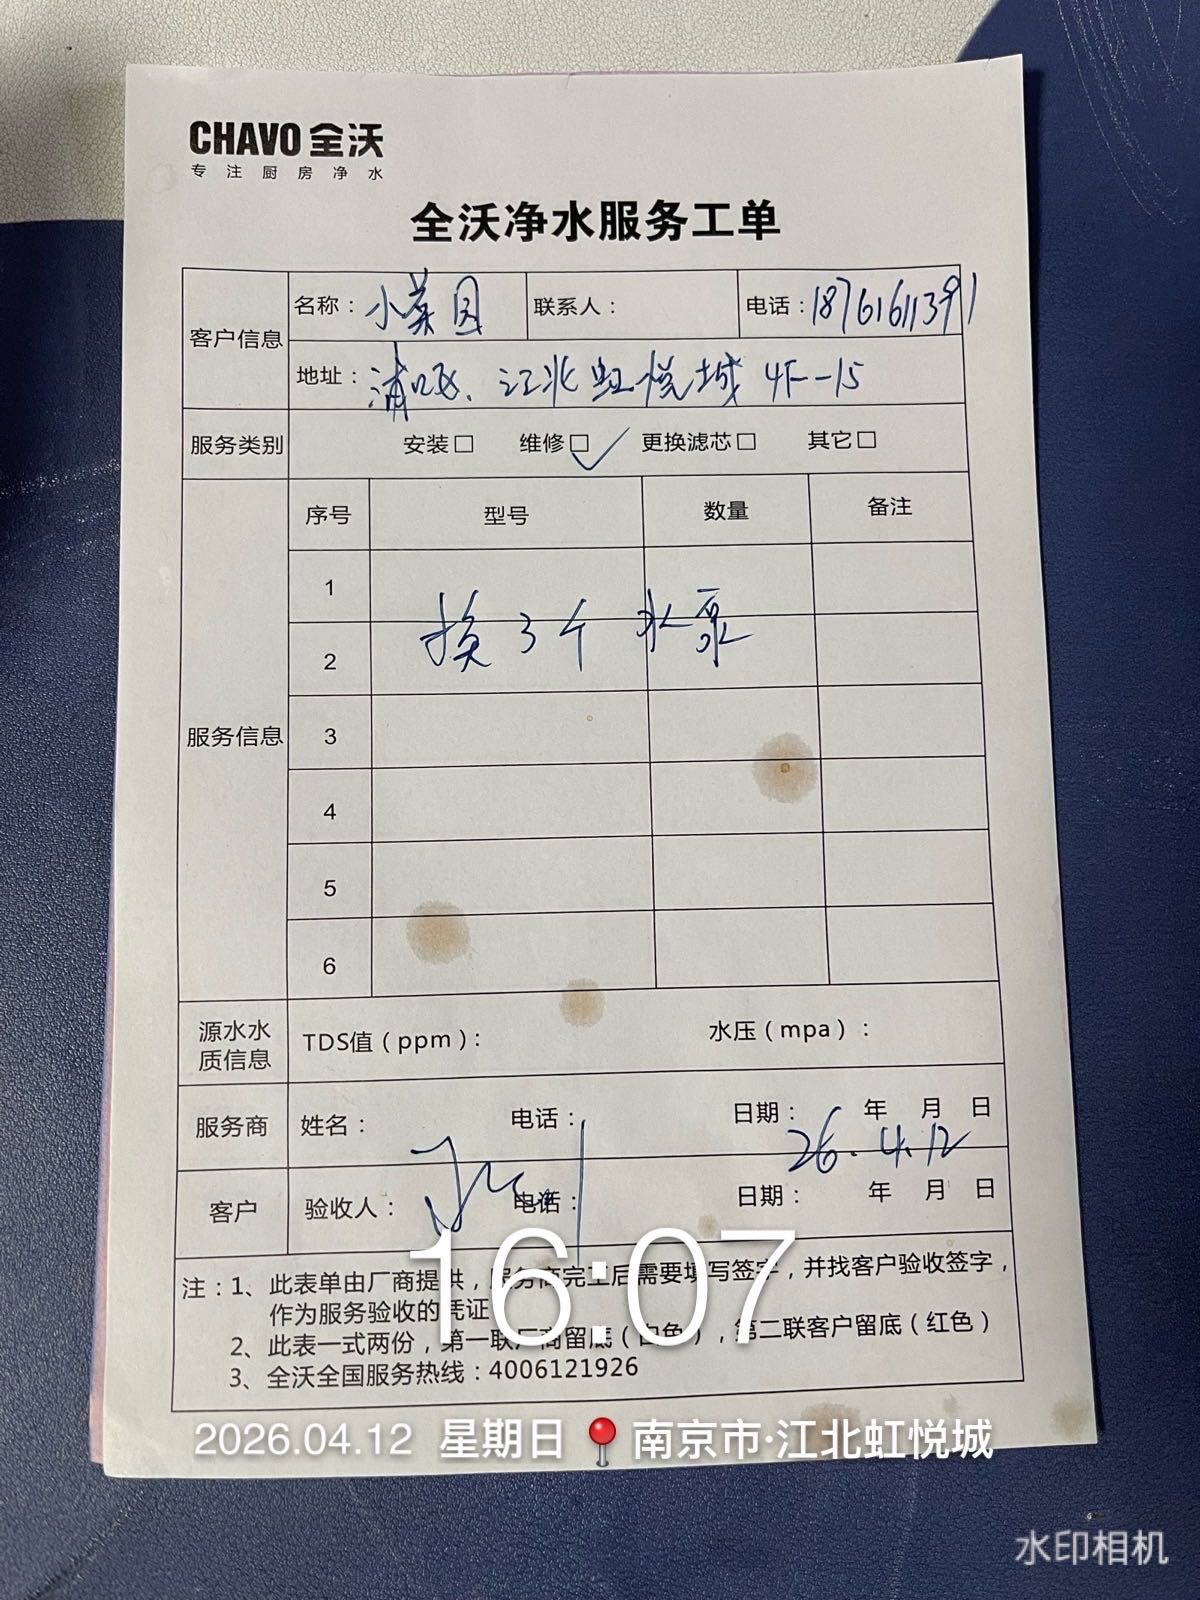 CHAVO 全沃
专注厨房净水
全沃净水服务工单
客户信息
名称：小菜园 联系人： 电话：18761611391
地址：浦口区、江北虹悦城 4F-15
服务类别 安装□ 维修□✓ 更换滤芯□ 其它□
服务信息
序号 型号 数量 备注
1
换3个水泵
2
3
4
5
6
源水水质信息 TDS值（ppm）： 水压（mpa）：
服务商 姓名： 电话： 日期： 年 月 日
26.4.12
客户 验收人： 电话： 日期： 年 月 日
注：1、此表单由厂商提供，服务商完工后需要填写签字，并找客户验收签字，
作为服务验收的凭证
2、此表一式两份，第一联厂商留底（白色），第二联客户留底（红色）
3、全沃全国服务热线：4006121926
16:07
2026.04.12 星期日 📍南京市·江北虹悦城
水印相机